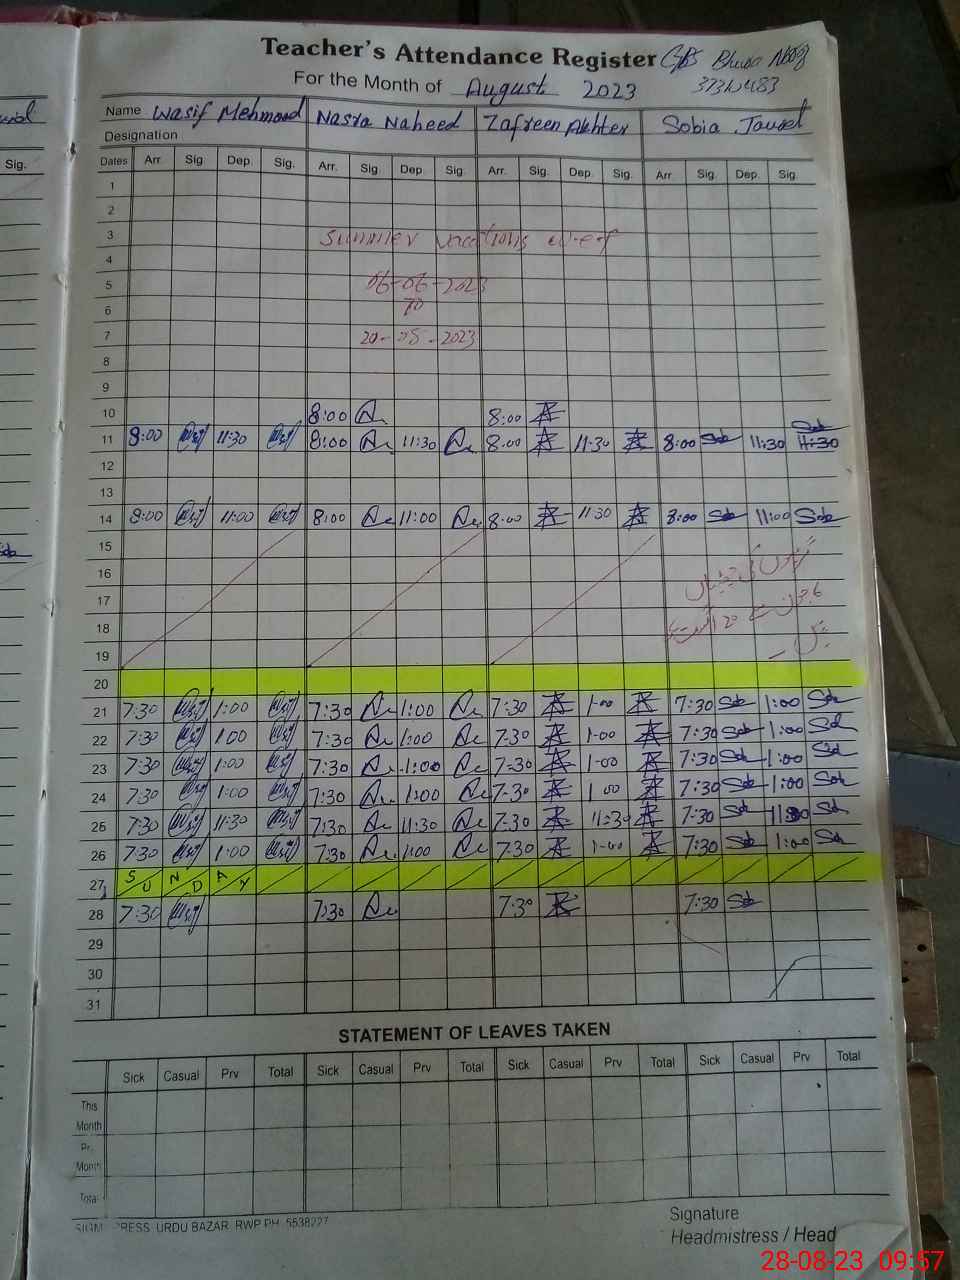 Teacher's Attendance Register GPS Bhura
For the Month of August 2023 37310483
Name Wasif Mehmood Nasra Naheed Zafreen Akhter Sobia Javed
Designation
Sig. Dates Arr. Sig. Dep. Sig. Arr. Sig. Dep. Sig. Arr. Sig. Dep. Sig. Arr Sig. Dep. Sig.
1
2
3 Summer vacations w-e-f
4
5 06-06-2023
6 To
7 20-08-2023
8
9
10 8:00 8:00
11 8:00 11:30 8:00 11:30 8:00 11:30 8:00 Sob 11:30 Sob 11:30
12
13
14 8:00 11:00 8:00 11:00 8:00 11:30 8:00 Sob 11:00 Sob
15
16 گرمیوں کی چھٹیاں
17 6 جون سے 20 اگست تک
18
19
20
21 7:30 1:00 7:30 1:00 7:30 1-00 7:30 Sob 1:00 Sob
22 7:30 1:00 7:30 1:00 7:30 1-00 7:30 Sob 1:00 Sob
23 7:30 1:00 7:30 1:00 7:30 1-00 7:30 Sob 1:00 Sob
24 7:30 1:00 7:30 1:00 7:30 1:00 7:30 Sob 1:00 Sob
25 7:30 11:30 7:30 11:30 7:30 11:30 7:30 Sob 11:30 Sob
26 7:30 1:00 7:30 1:00 7:30 1-00 7:30 Sob 1:00 Sob
27 SUNDAY
28 7:30 7:30 7:30 7:30 Sob
29
30
31
STATEMENT OF LEAVES TAKEN
Sick Casual Prv Total Sick Casual Prv Total Sick Casual Prv Total Sick Casual Prv Total
This Month
Pr. Month
Total
PRESS, URDU BAZAR, RWP PH: 5538227
Signature
Headmistress / Head
28-08-23 09:57